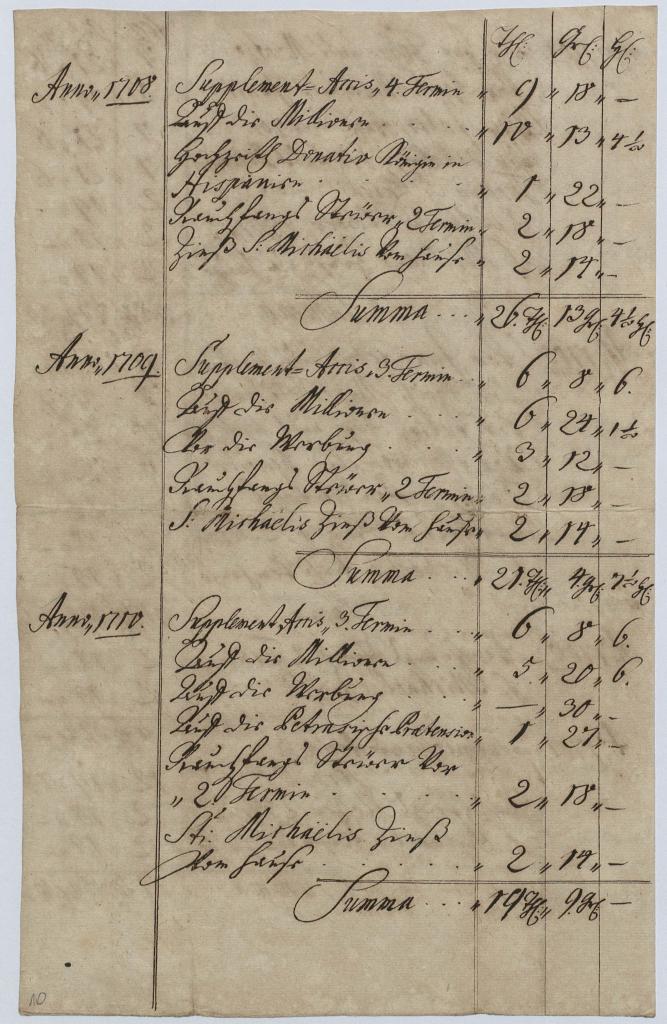 Thl: Gr: Hl:
Anno, 1708. Supplement-Accis, 4. Termin " 9 " 18 " —
Auff die Millionen . . . " 10 " 13 " 4 1/20
Hochzeith Donativ Königin in
Hispanien . . . " 1 " 22 " —
Rauchfangs Steüer, 2 Termin " 2 " 18 " —
Zinß S: Michaëlis Vom Hause " 2 " 14 " —
Summa . . . " 26. Thl: 13 Gr: 4 1/20 Hl:
Anno, 1709. Supplement-Accis, 3. Termin " 6 " 8 " 6.
Auff die Millionen . . . " 6 " 24 " 1 1/20
Vor die Werbung . . " 3 " 12 " —
Rauchfangs Steüer, 2 Termin " 2 " 18 " —
S: Michaëlis Zinß Vom Hause " 2 " 14 " —
Summa . . . " 21. Thl: 4. Gr: 7 1/20 Hl:
Anno, 1710. Supplement, Accis, 3. Termin " 6 " 8 " 6.
Auff die Millionen . . . " 5 " 20 " 6.
Auff die Werbung . . . " — " 30 " —
Auff die Praetension " 1 " 27 " —
Rauchfangs Steüer Vor
" 2 Termin . . . . " 2 " 18 " —
Sti: Michaëlis Zinß
Vom Hause . . . . " 2 " 14 " —
Summa . . . " 19 Thl: 9. Gr: —
10